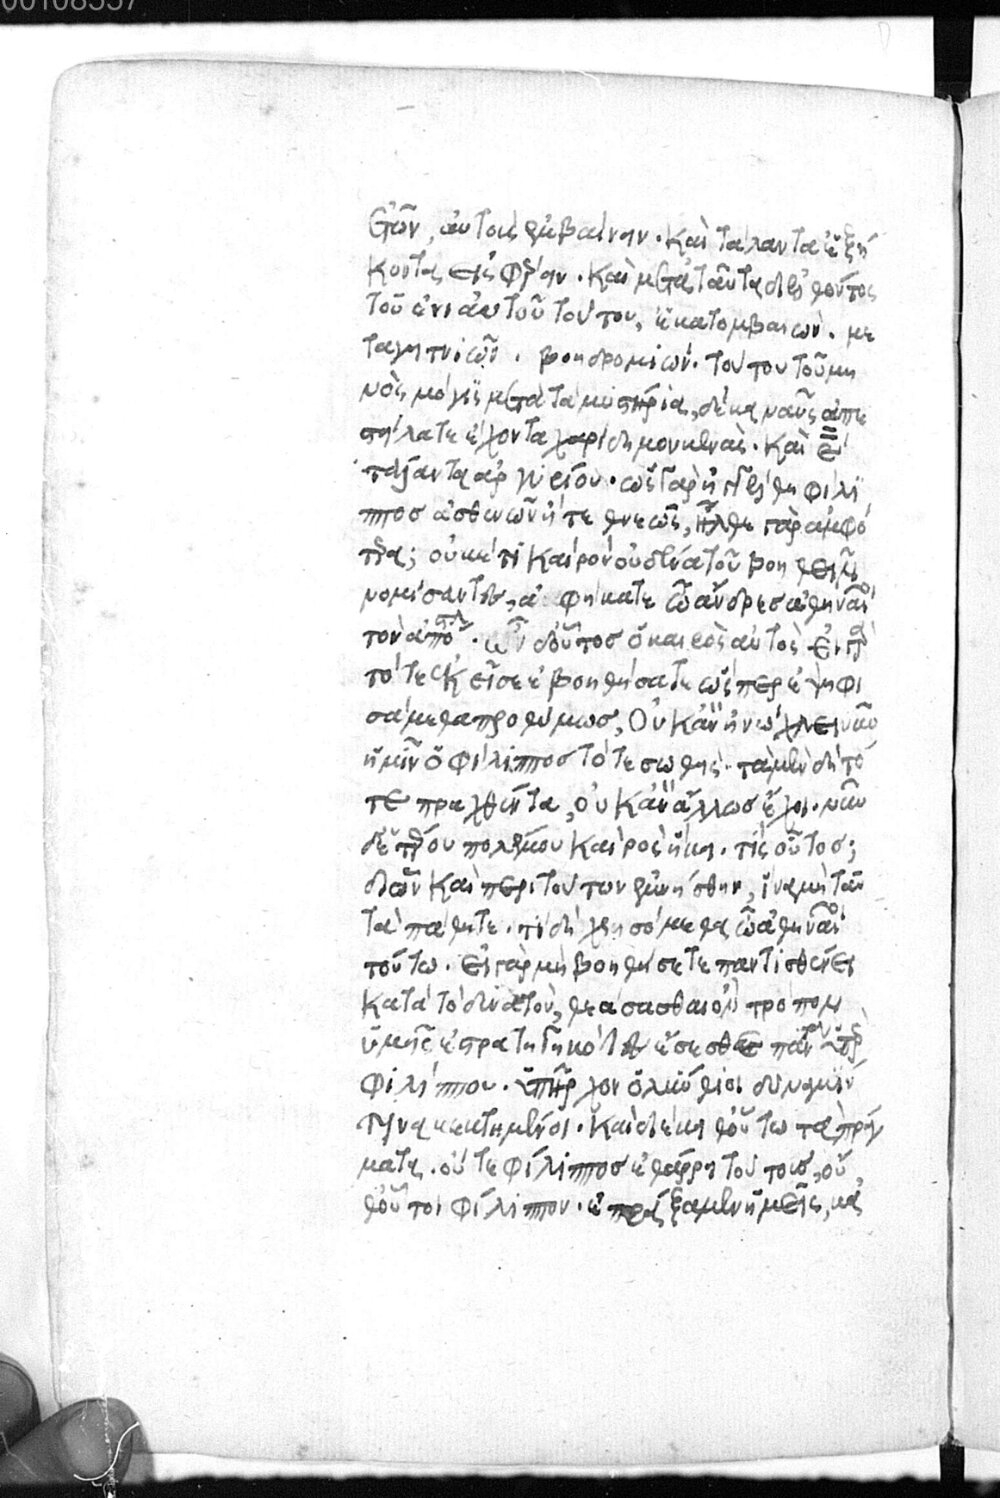 ετῶν, αὐτοὺς ἐμβαίνειν. καὶ τάλαντα ἑξή
κοντα εἰσφέρειν. καὶ μετὰ ταῦτα διελθόντος
τοῦ ἐνιαυτοῦ τούτου, ἑκατομβαιών. με
ταγειτνιών. βοηδρομιών. τούτου τοῦ μη
νὸς μόγις μετὰ τὰ μυστήρια, δέκα ναῦς ἀπε
στείλατε ἔχοντα χαρίδημον κενὰς. καὶ ε
τάλαντα ἀργυρίου. ὡς γὰρ ἠγγέλθη φίλι
ππος ἀσθενῶν ἢ τεθνεὼς, ἦλθε γὰρ ἀμφό
τερα; οὐκέτι καιρὸν οὐδένα τοῦ βοηθεῖν
νομίσαντες, ἀφήκατε ὦ ἄνδρες ἀθηναῖοι
τὸν ἀπόστολον. ἦν δ' οὗτος ὁ καιρὸς αὐτὸς. εἰ γὰρ
τότε ἐκεῖσε ἐβοηθήσατε ὥσπερ ἐψηφι
σάμεθα προθύμως, οὐκ ἂν ἠνώχλει νῦν
ἡμῖν ὁ φίλιππος τότε σωθείς. τὰ μὲν δὴ τό
τε πραχθέντα, οὐκ ἂν ἄλλως ἔχοι. νῦν
δ' ἑτέρου πολέμου καιρὸς ἥκει. τίς οὗτος;
δι' ὃν καὶ περὶ τούτων ἐμνήσθην, ἵνα μὴ ταυ
τὰ πάθητε. τί δὴ χρησόμεθα ὦ ἀθηναῖοι
τούτω. εἰ γὰρ μὴ βοηθήσετε παντὶ σθένει
κατὰ τὸ δυνατὸν, θεάσασθαι ὃν τρόπον
ὑμεῖς ἐστρατηγηκότες ἔσεσθε πάνθ' ὑπὲρ
φιλίππου. ὑπῆρχον ὀλύνθιοι δύναμίν
τινα κεκτημένοι. καὶ διέκειθ' οὕτω τὰ πράγ
ματα. οὔτε φίλιππος ἐθάρρει τούτους, οὔ
θ' οὗτοι φίλιππον. ἐπράξαμεν ἡμεῖς, κἀ